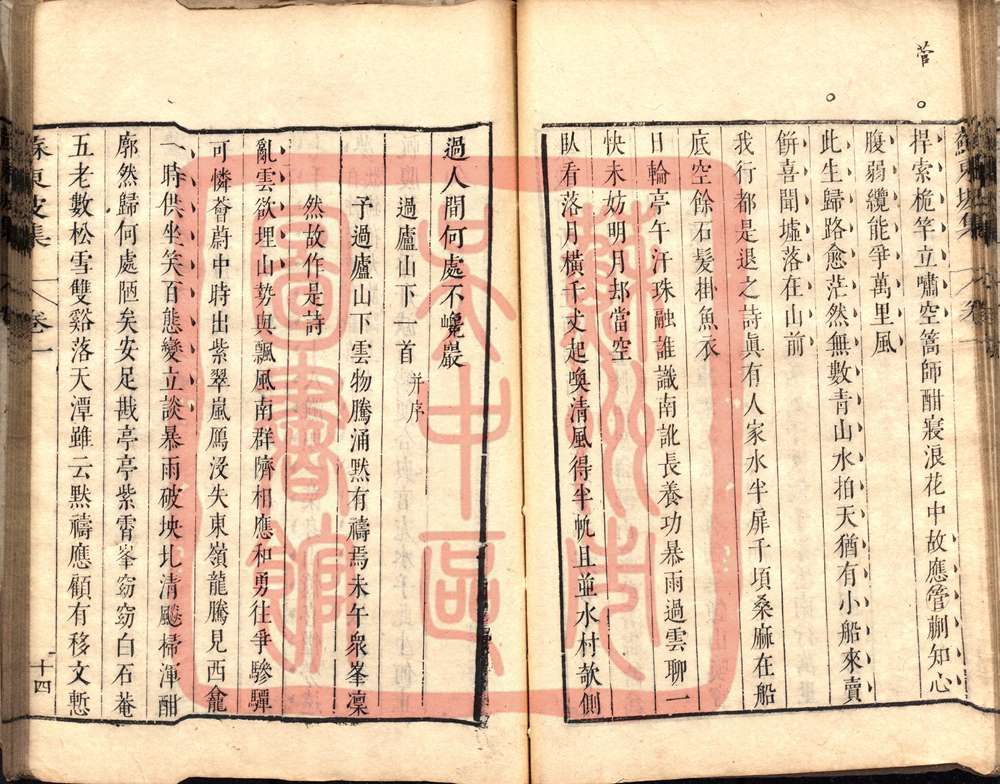 菅
捍索桅竿立嘯空篙師酣寢浪花中故應管蒯知心
腹弱纜能爭萬里風
此生歸路愈茫然無數青山水拍天猶有小船來賣
餅喜聞墟落在山前
我行都是退之詩眞有人家水半扉千頃桑麻在船
底空餘石髮掛魚衣
日輪亭午汗珠融誰識南訛長養功暴雨過雲聊一
快未妨明月却當空
臥看落月橫千丈起喚清風得半帆且並水村欹側
過人間何處不巉巖
過廬山下一首 并序
予過廬山下雲物騰涌默有禱焉未午衆峯凜
然故作是詩
亂雲欲埋山勢與飄風南群隮相應和勇往爭驂驔
可憐薈蔚中時出紫翠嵐鴈沒失東嶺龍騰見西龕
一時供坐笑百態變立談暴雨破坱圠清飈掃渾酣
廓然歸何處陋矣安足戡亭亭紫霄峯窈窈白石菴
五老數松雪雙谿落天潭雖云默禱應顧有移文慙
蘇東坡集 卷一 十四
蘇州市吳中區圖書館